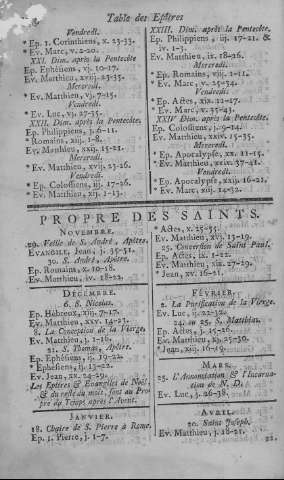 Table des Epîtres
Vendredi.
* Ep. 1. Corinthiens, x. 23-33.
* Ev. Marc, v. 2-20.
XXI. Dim. après la Pentecôte
Ep. Ephésiens, vj. 10-17.
Ev. Matthieu, xviij. 23-35.
Mercredi.
Vendredi.
* Ev. Matthieu, vj. 7-15.
* Ev. Luc, vj. 27-35.
XXII. Dim. après la Pentecôte.
Ep. Philippiens, j. 6-11.
* Romains, xiij. 1-8.
Ev. Matthieu, xxij. 15-21.
Mercredi.
* Ev. Matthieu, xvij. 23-26.
Vendredi.
* Ep. Colossiens, iij. 17-26.
* Ev. Matthieu, xij. 1-13.
XXIII. Dim. après la Pentecôte
Ep. Philippiens, iij. 17-21. &
iv. 1-3.
Ev. Matthieu, ix. 18-26.
Mercredi.
* Ep. Romains, viij. 1-11.
* Ev. Marc, v. 25-34.
Vendredi.
* Ep. Actes, xix. 22-27.
* Ev. Marc, x. 35-45.
XXIV Dim. après la Pentecôte.
Ep. Colossiens, j. 9-14.
Ev. Matthieu, xxiv. 15-35.
Mercredi.
* Ep. Apocalypse, xx. 11-15.
* Ev. Matthieu, xxiv. 37-41.
Vendredi.
* Ep. Apocalypse, xxij. 16-21.
* Ev. Marc, xiij. 14-32.
PROPRE DES SAINTS.
NOVEMBRE.
29. Veille de S. André, Apôtre.
EVANGILE, Jean, j. 35-51.
30. S. André, Apôtre.
Ep. Romains, x. 10-18.
Ev. Matthieu, iv. 18-22.
DÉCEMBRE.
6. S. Nicolas.
Ep. Hébreux, xiij. 7-17.
Ev. Matthieu, xxv. 14-23.
8. La Conception de la Vierge,
Ev. Matthieu, j. 1-16.
21. S. Thomas, Apôtre.
Ep. Ephésiens, ij. 19-22.
* Ephésiens, ij. 13-22.
Ev. Jean, xx. 24-29.
Les Epîtres & Evangiles de Noël,
& du reste du mois, sont au Pro-
pre du Temps après l'Avent.
JANVIER.
18. Chaire de S. Pierre à Rome.
Ep. 1. Pierre, j. 1-7.
* Actes, x. 25-35.
Ev. Matthieu, xvj. 13-19.
25. Conversion de Saint Paul.
Ep. Actes, ix. 1-22.
Ev. Matthieu, xix. 27-29.
* Jean, xv. 16-21.
FÉVRIER.
2. La Purification de la Vierge.
Ev. Luc, ij. 22-32.
24. ou 25. S. Matthias.
Ep. Actes, j. 15-26.
Ev. Matthieu, xj. 25-30.
* Jean, xiij. 16-19.
MARS.
25. L'Annonciation & l'Incarna-
tion de N. D.
Ev. Luc, j. 26-38.
AVRIL.
20. Saint Joseph.
Ev. Matthieu, j. 18-21.